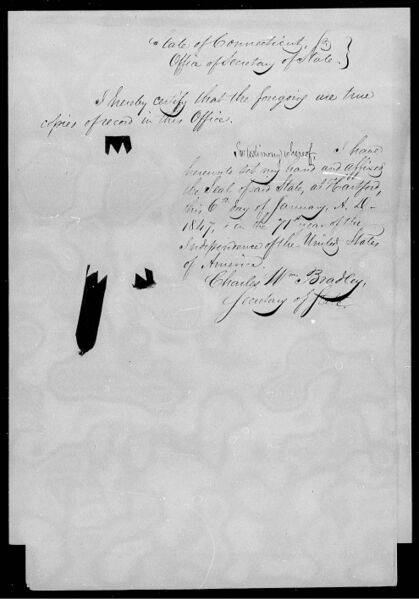 State of Connecticut, }
Office of Secretary of State. }
I hereby certify that the foregoing are true
copies of record in this Office.
In testimony whereof, I have
hereunto set my hand and affixed
the Seal of said State, at Hartford,
this 6th day of January, A.D.
1847, & in the 71st year of the
Independence of the United States
of America.
Charles Wm Bradley,
Secretary of State.